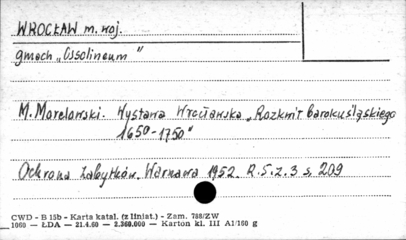 WROCŁAW m. woj.
gmach „Ossolineum"
M. Morelowski. Wystawa Wrocławska „Rozkwit baroku śląskiego
1650-1750"
Ochrona Zabytków. Warszawa 1952. R. 5. z. 3 s. 209
CWD - B 15b - Karta katal. (z liniat.) - Zam. 788/ZW
1060 — ŁDA — 21.4.60 — 2.360.000 — Karton kl. III A1/160 g